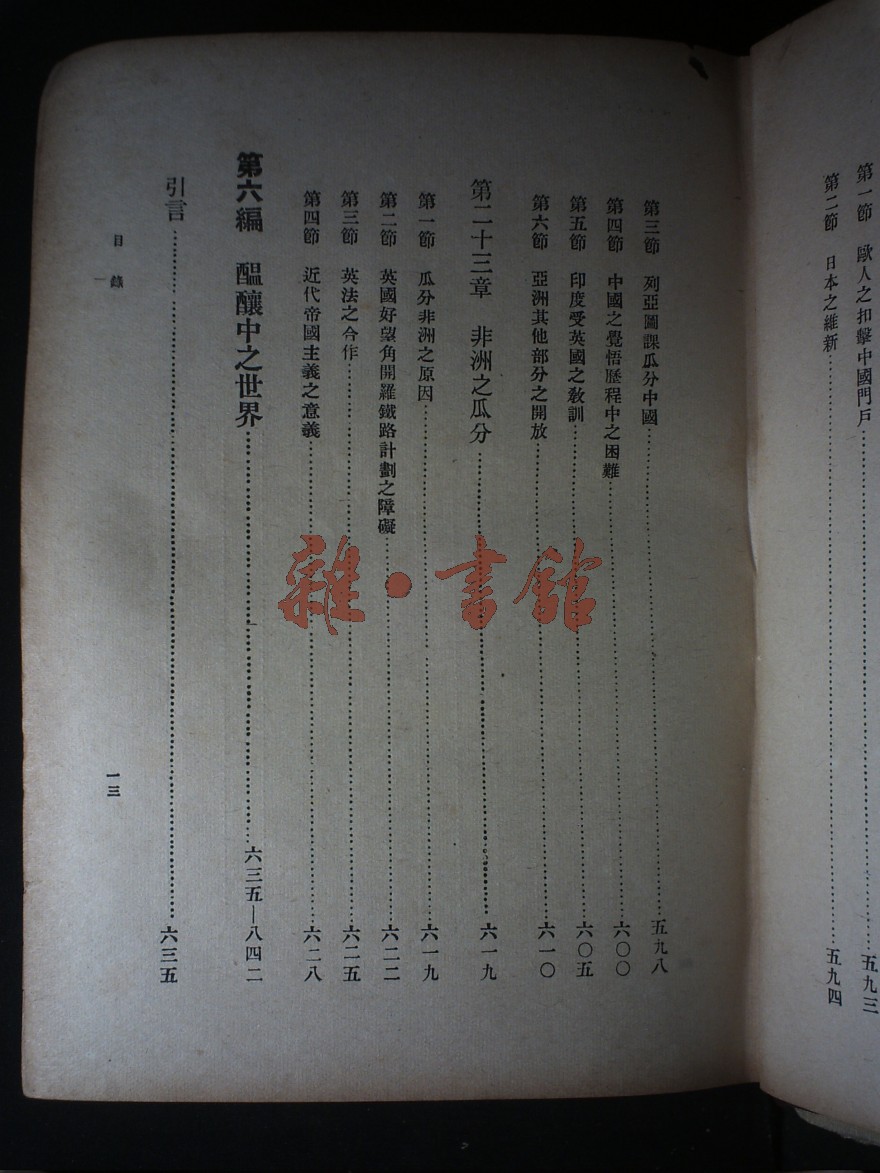 第一節　歐人之扣擊中國門戶……五九三
第二節　日本之維新……五九四
第三節　列亞圖謀瓜分中國……五九八
第四節　中國之覺悟歷程中之困難……六〇〇
第五節　印度受英國之敎訓……六〇五
第六節　亞洲其他部分之開放……六一〇
第二十三章　非洲之瓜分……六一九
第一節　瓜分非洲之原因……六一九
第二節　英國好望角開羅鐵路計劃之障礙……六二二
第三節　英法之合作……六二五
第四節　近代帝國主義之意義……六二八
第六編　醞釀中之世界……六三五—八四二
引言……六三五
目錄
一三
雜·書館